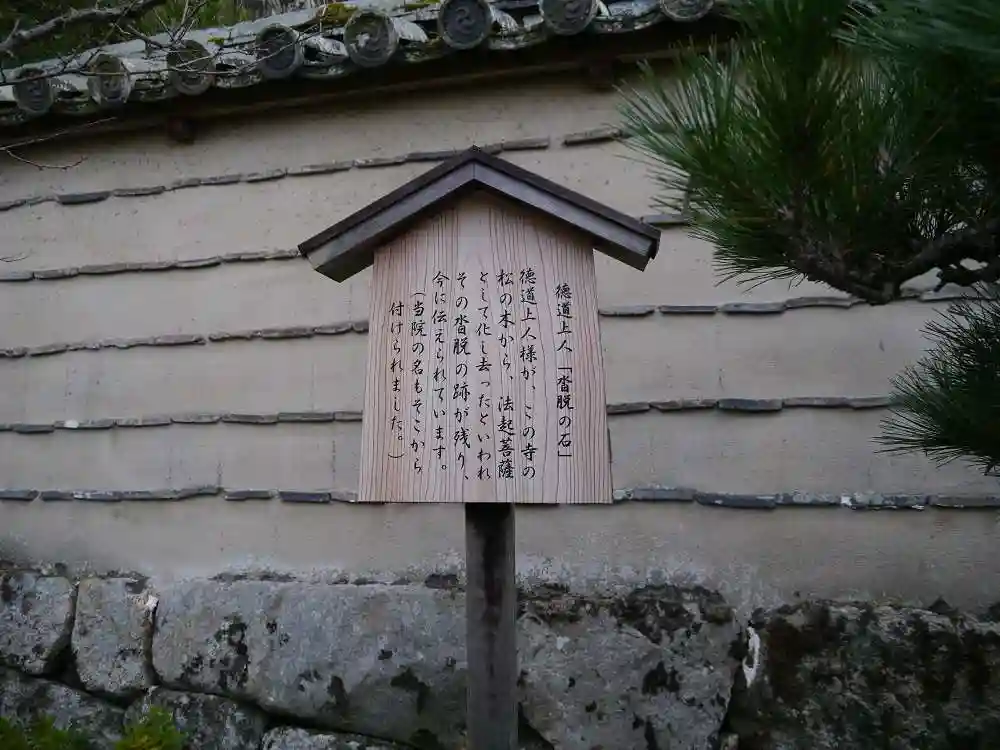 徳道上人「沓脱の石」
徳道上人様が、この寺の
松の木から、法起菩薩
として化し去ったといわれ
その沓脱の跡が残り、
今に伝えられています。
（当院の名もそこから
付けられました。）